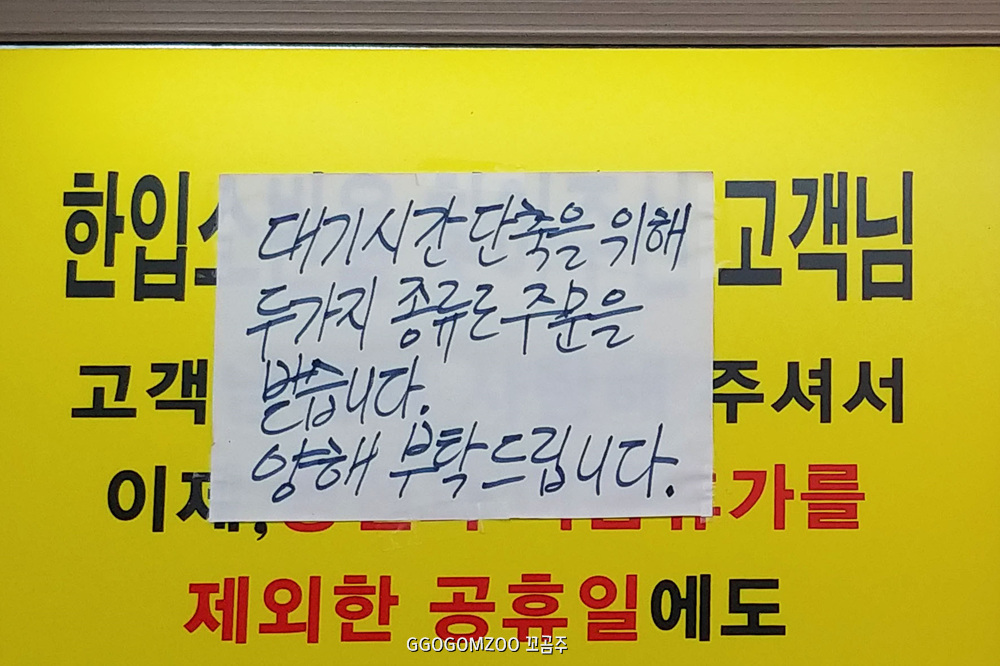 한입 고객님
대기시간 단축을 위해
두가지 종류로 주문을
받습니다.
양해 부탁드립니다.
고객 주셔서
이제, 휴가를
제외한 공휴일에도
GGOGOMZOO 꼬곰주